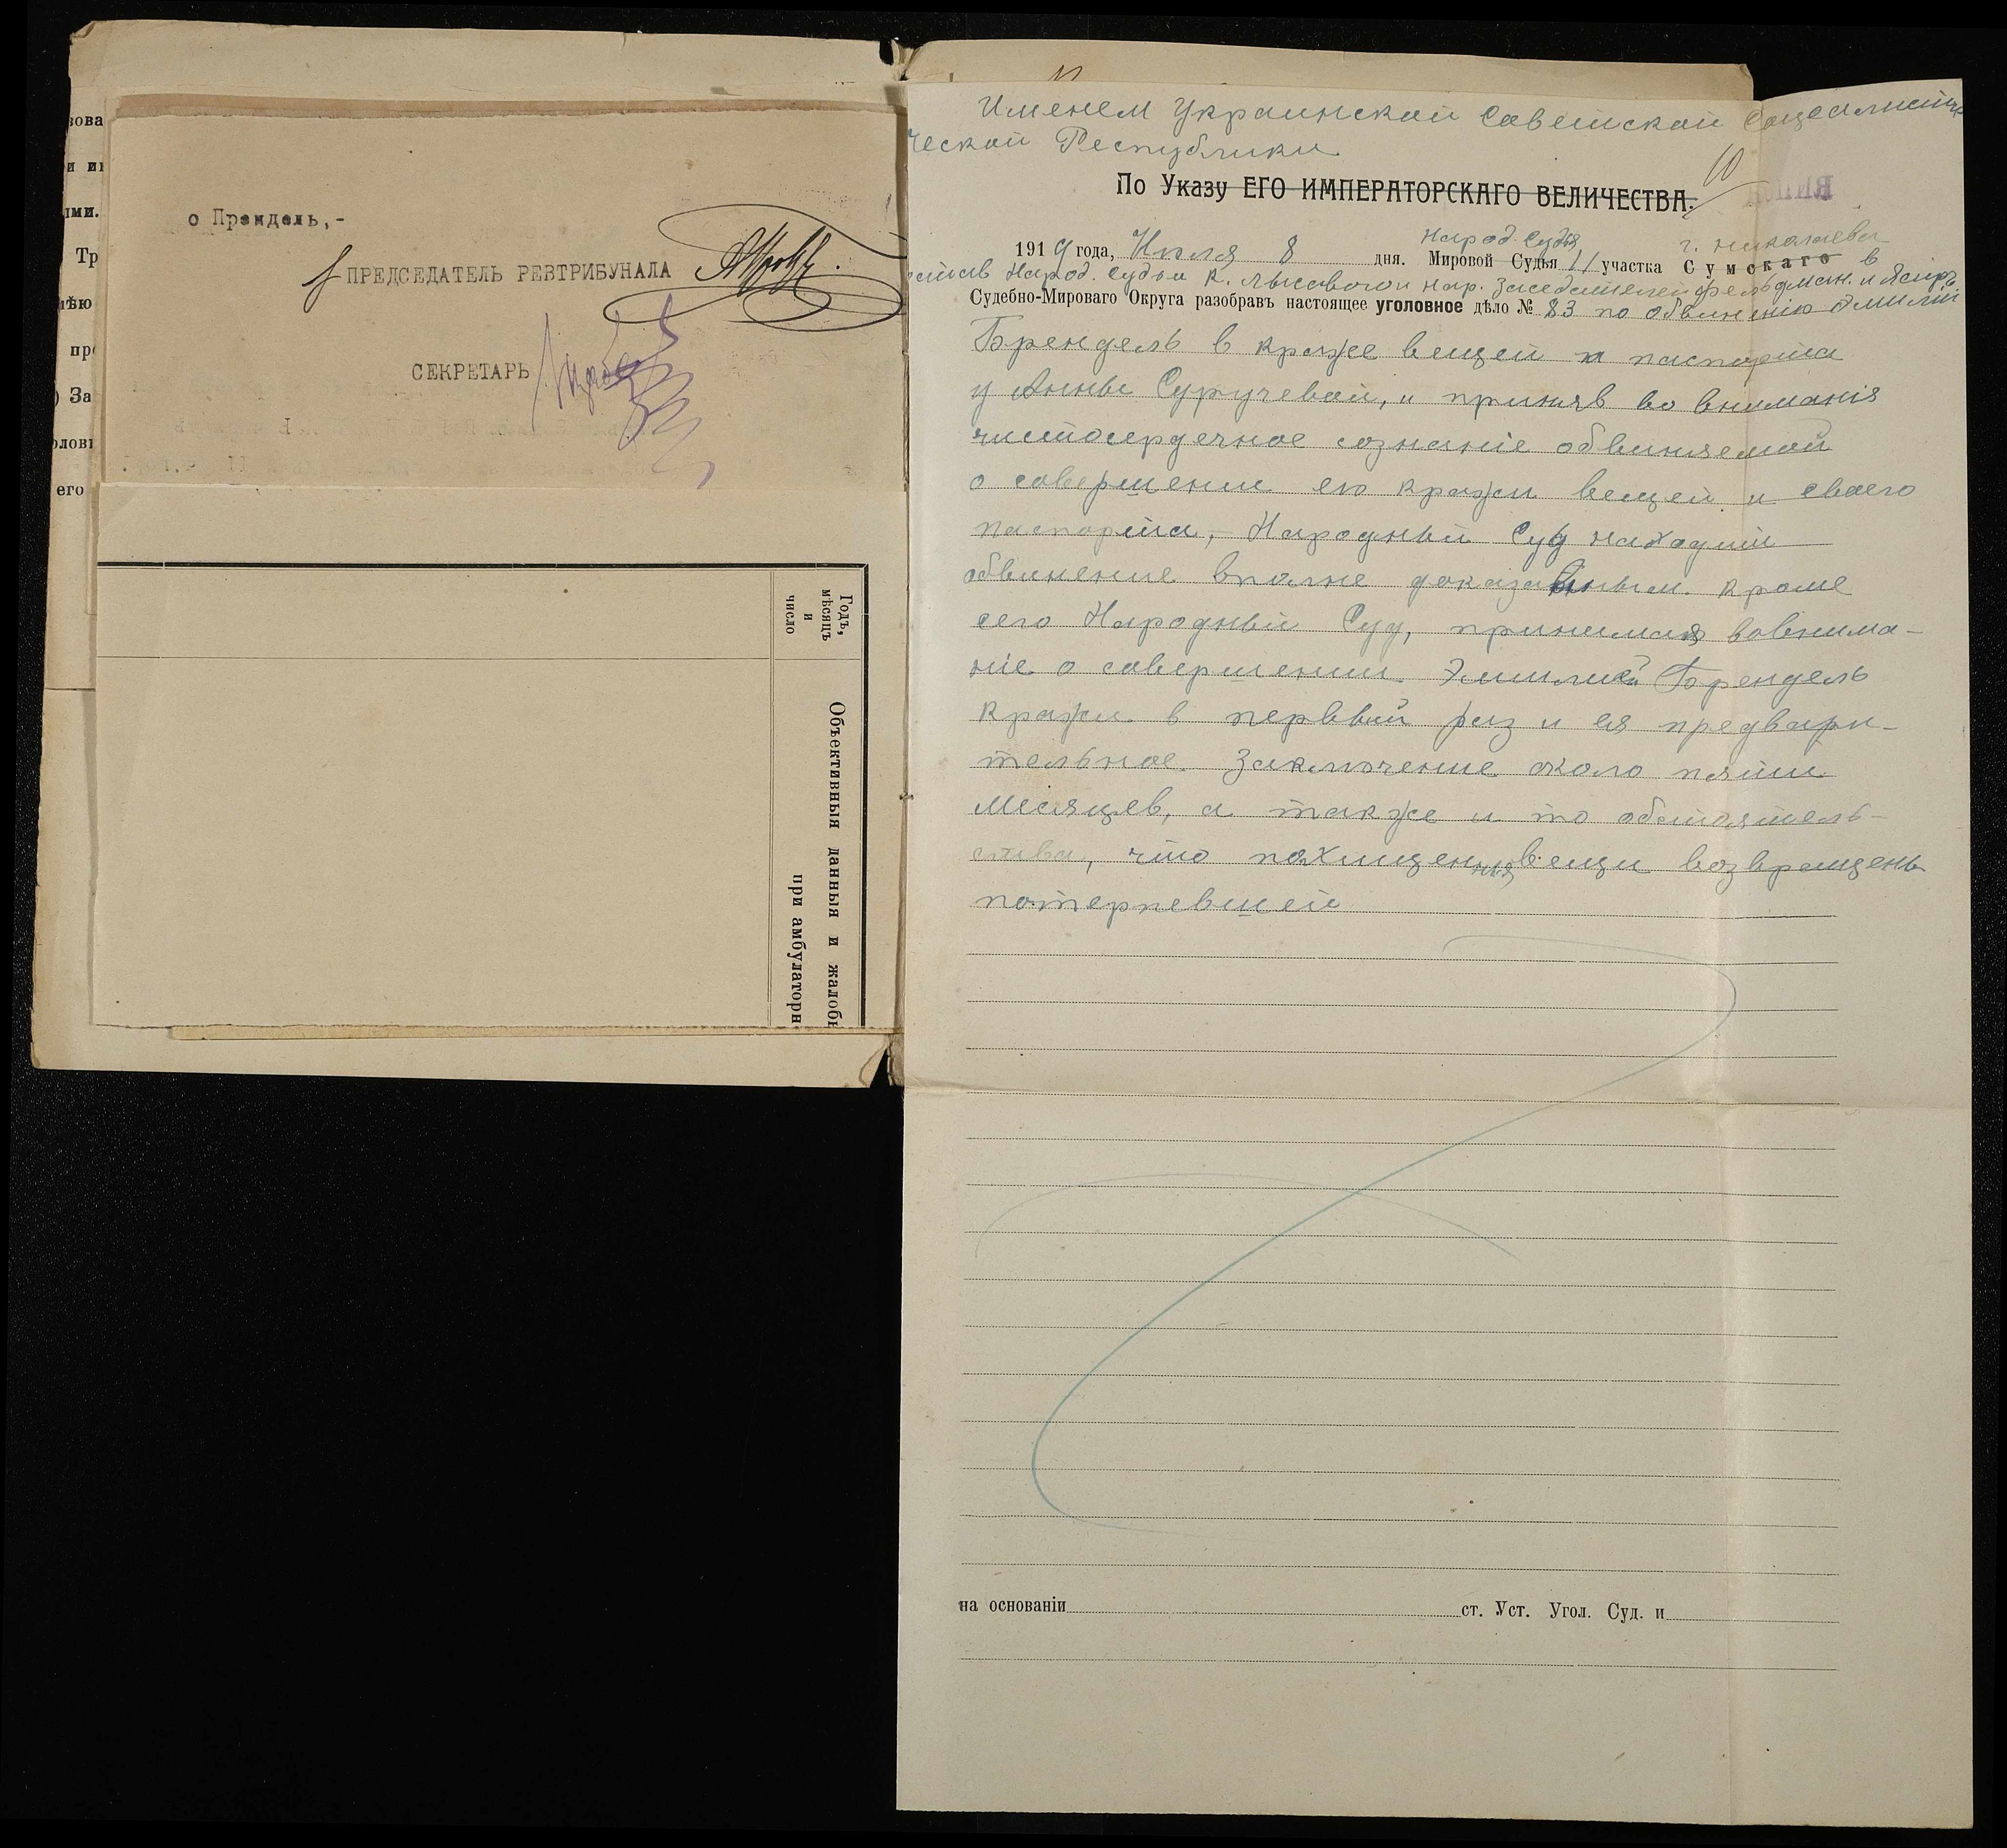 зова
и ин
ыми.
Тр
мѣю
пр
) За
олові
его
о Прендель,-
ПРЕДСЕДАТЕЛЬ РЕВТРИБУНАЛА
СЕКРЕТАРЬ
Годъ, мѣсяцъ и число
Объективныя данныя и жалобы
при амбулаторн
Именем Украинской Советской Социалисти-
ческой Республики
10
По Указу ЕГО ИМПЕРАТОРСКАГО ВЕЛИЧЕСТВА.
Народ. Судья г. Николаева в
1919 года, Июля 8 дня. Мировой Судья 11 участка Сумскаго
составѣ Народ. Судьи К. Лысаваго и Нар. Заседателей Фельдман. и
Судебно-Мироваго Округа разобравъ настоящее уголовное дѣло № 83 по обвинению Эмилии
Брендель в краже вещей и паспорта
у Анны Суручевой, и приняв во внимания
чистосердечное сознаніе обвиняемой
о совершении ею кражи вещей и своего
паспорта, Народный Суд находит
обвинение вполне доказанным. Кроме
сего Народный Суд, принимая вовнима-
ніе о совершении Эмилией Брендель
кражи в первый раз и ея предвари-
тельное заключение около пяти
месяцев, а также и то обстоятель-
ства, что похищенныя вещи возвращены
потерпевшей
на основаніи ст. Уст. Угол. Суд. и